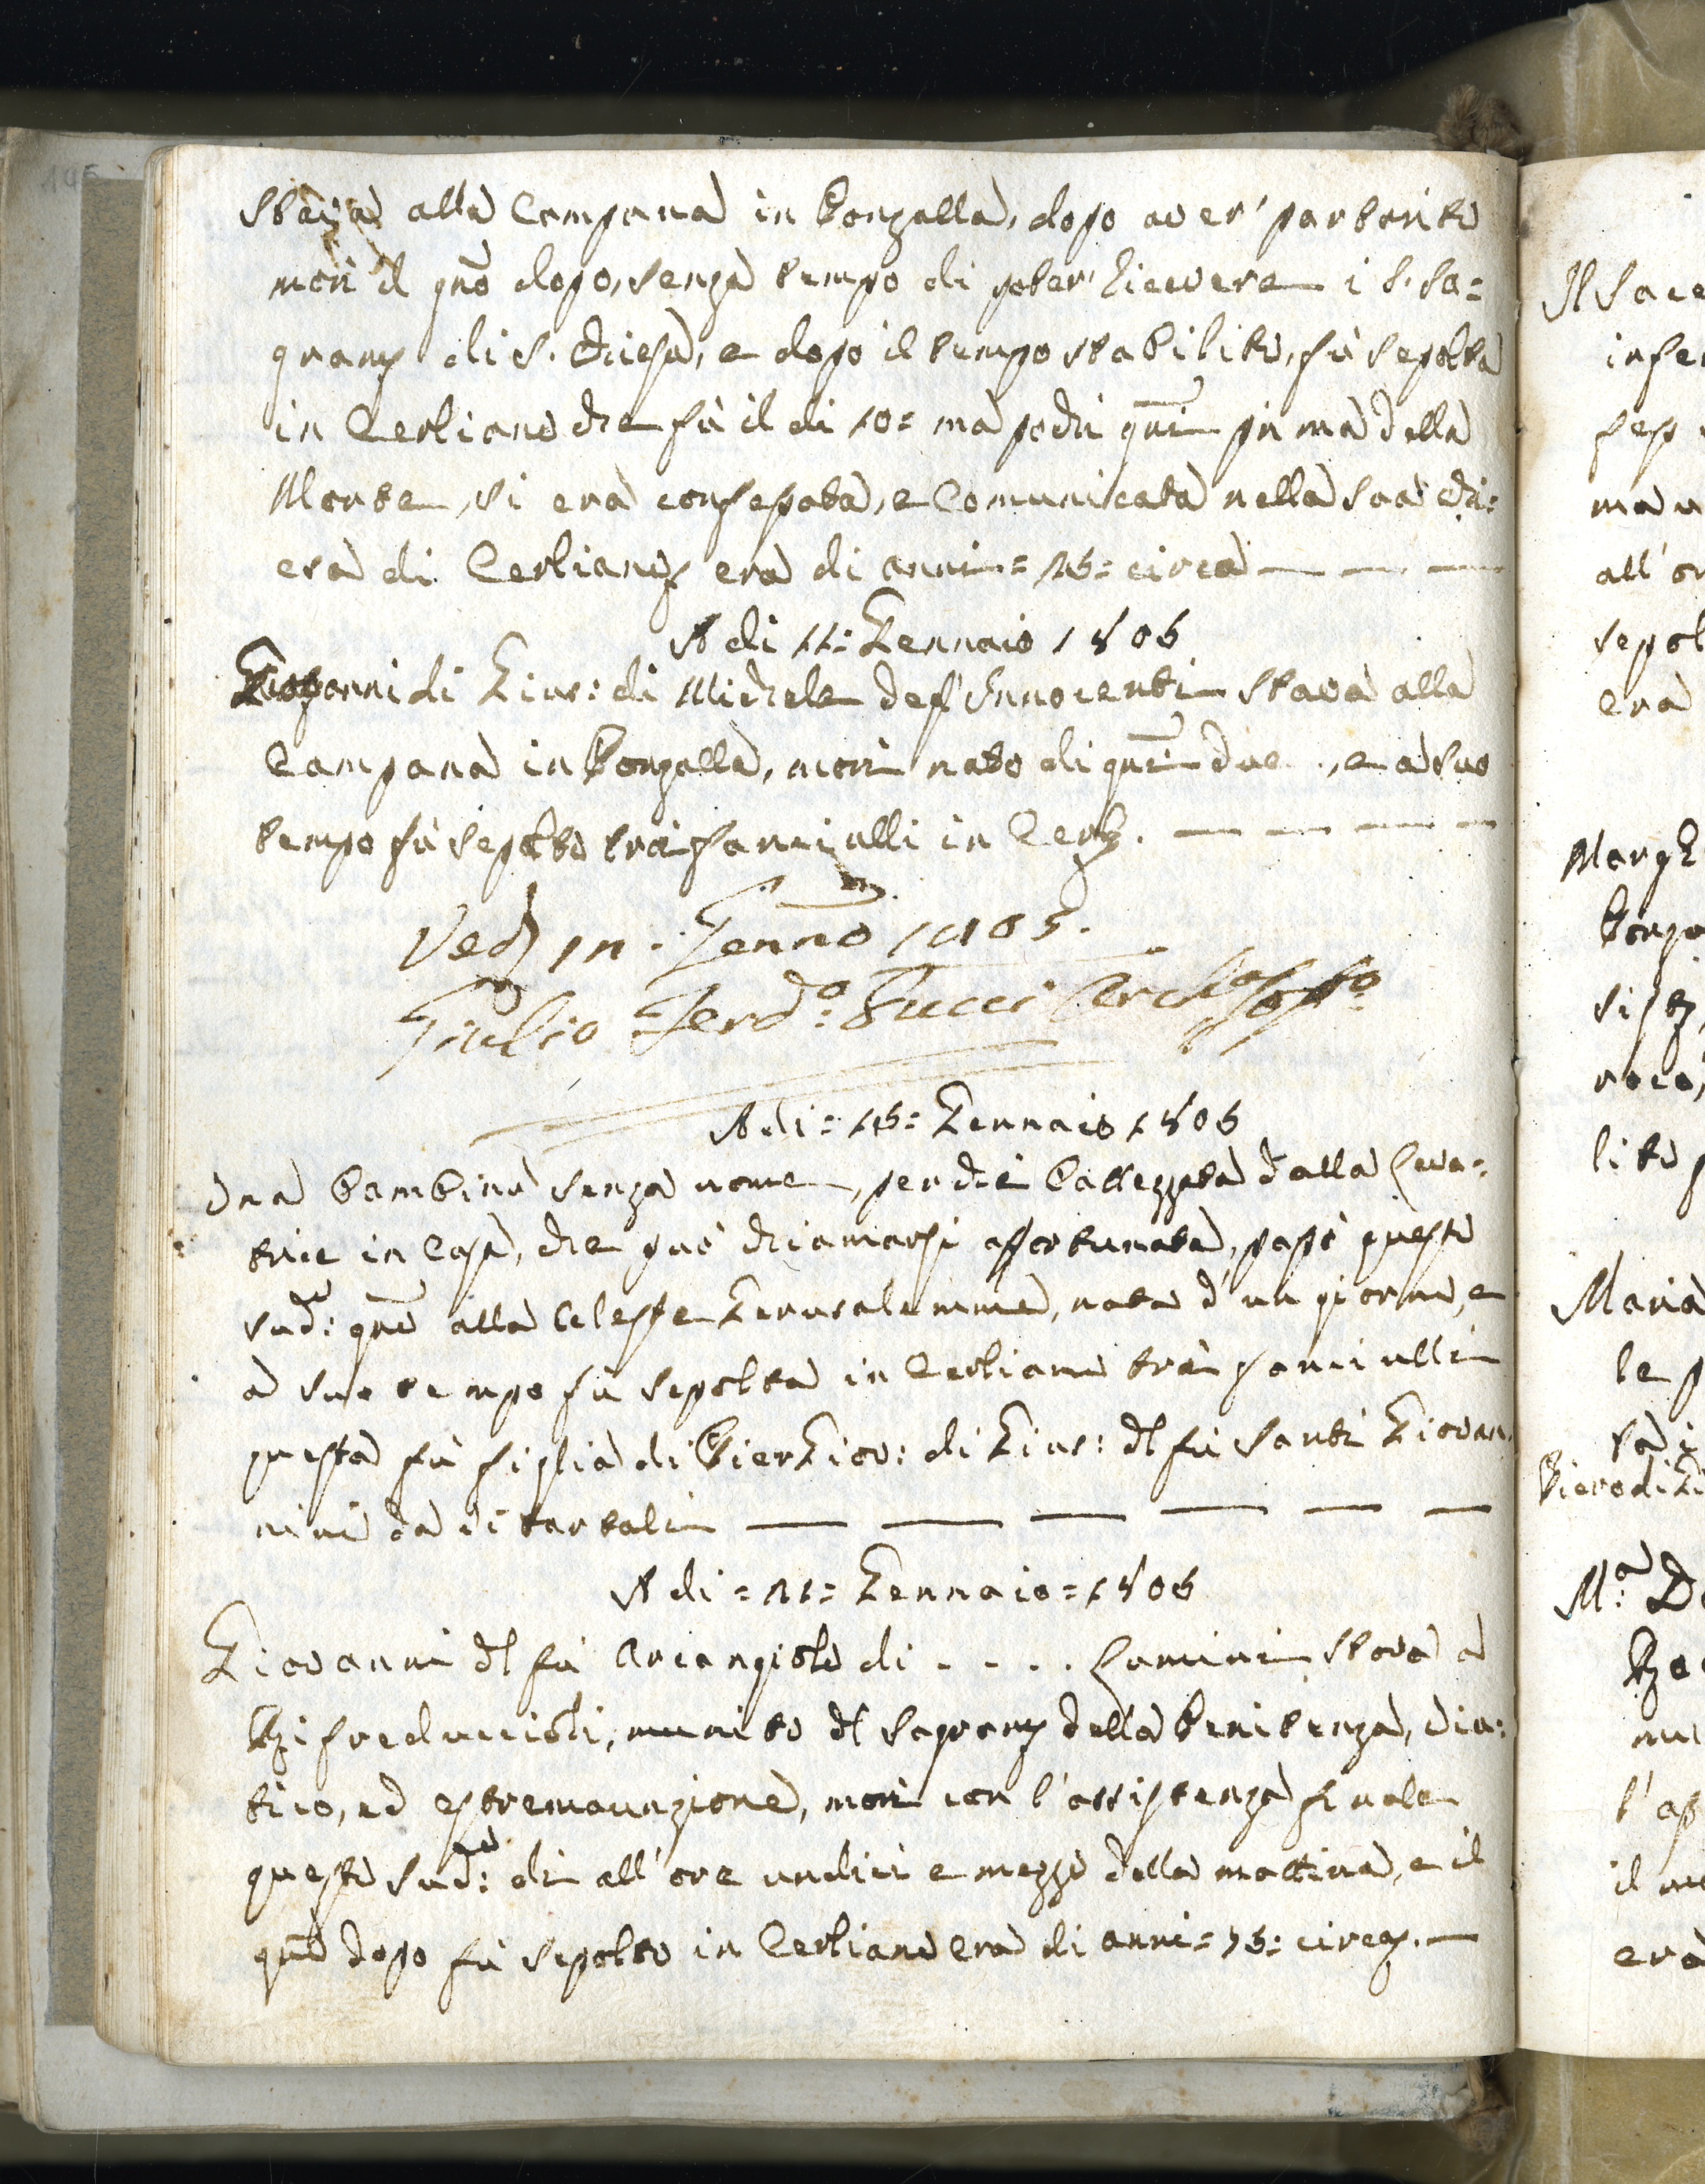 Stava alla Campana in Ponzalla, dopo aver' partorito
morì il gno dopo, senza tempo di poter' ricevere i S. Sa=
gram di S. Chiesa, e dopo il tempo stabilito, fù sepolta
in Cerliano che fù il dì 10= ma pochi gni prima della
Morte, si era confessata, e Comunicata nella sua Chi:
esa di Cerliano era di anni= = circa
A dì 11: Gennaio 1805
Giovanni di Gius: di Michele degl'Innocenti stava alla
Campana in Ponzalla, morì nato di gni due, e a suo
tempo fù sepolto trà fanciulli in Cerl.
Ved in Genno 1805.
Giulio Ferdo: Pucci
A dì= 15= Gennaio 1805
Una bambina senza nome, perchè battezzata dalla Leva=
trice in Casa, che può chiamarsi affortunata, passò questo
sudo: gno alla Celeste Gerusalemme, nata d'un giorno, e
a suo tempo fù sepolta in Cerliano trà fanciulli
questa fù figlia di Pier Giov: di Gius: dl fù Santi Giovan,
nini da
A dì= 21= Gennaio= 1805
Giovanni dl fù Arcangiolo di . . . . stava a
munito dl Sagram della Penitenza, Via:
tico, ed estremaunzione, morì con l'assistenza finale
questo sudo: dì all'ore undici e mezzo della mattina, e il
gno dopo fù sepolto in Cerliano era di anni= 75= circa.
Il Sace
Maria
le p
Piero di Gi
Ma: Do
era